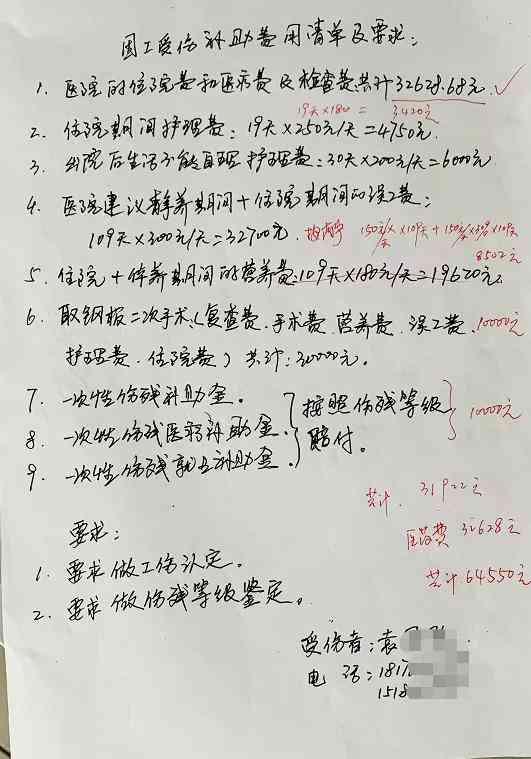 因工受伤补助费用清单及要求:
1. 医院的住院费和医疗费及检查费共计32628.68元. ✓
19天×180 = 3420元
2. 住院期间护理费: 19天×250元/天=4750元.
3. 出院后生活不能自理护理费: 30天×200元/天=6000元
4. 医院建议静养期间+住院期间的误工费:
109天×300元/天=32700元. 150元/天×109天+150元/天×
8502元
5. 住院+休养期间的营养费: 109天×180元/天=19620元.
6. 取钢板二次手术(复查费.手术费.营养费.误工费. 10000元
护理费.住院费) 共计:30000元.
7. 一次性伤残补助金.
8. 一次性伤残医疗补助金. 按照伤残等级赔付. 10000元
9. 一次性伤残就业补助金.
共计. 31922元
医药费 32628元
共计64550元
要求:
1. 要求做工伤认定.
2. 要求做伤残等级鉴定.
受伤者:袁
电 话:1817
1518